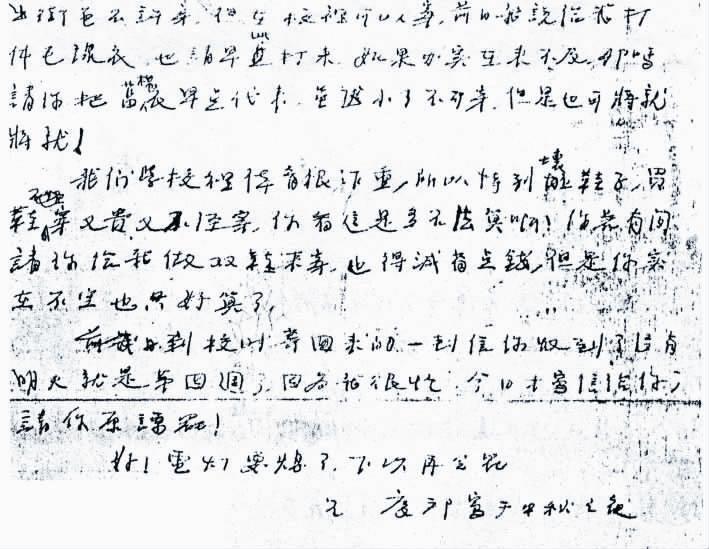 出街色不許穿,但在校裡可以穿,前日你說給我打
件毛線衣,也請早些打來,如果力實在來不及,那嗎
請你把舊棉衣早点代來,雖說小了不可穿,但是也可將就
將就!
我们學校裡体育很注重,所以特別壞鞋子,買
鞋穿又貴又不經穿,你看這是多無法算啊!你若有閒
請你给我做双鞋來穿,也得減省点錢,但是你實
在不空也只好算了,
前我到校时寄回來的一封信你收到了沒有
明天就是第四週了,因为我很忙,今日才寫信给你,
請你原諒罷!
好!電灯要熄了,下次再谈罷
兄 度邦寫于中秋之夜